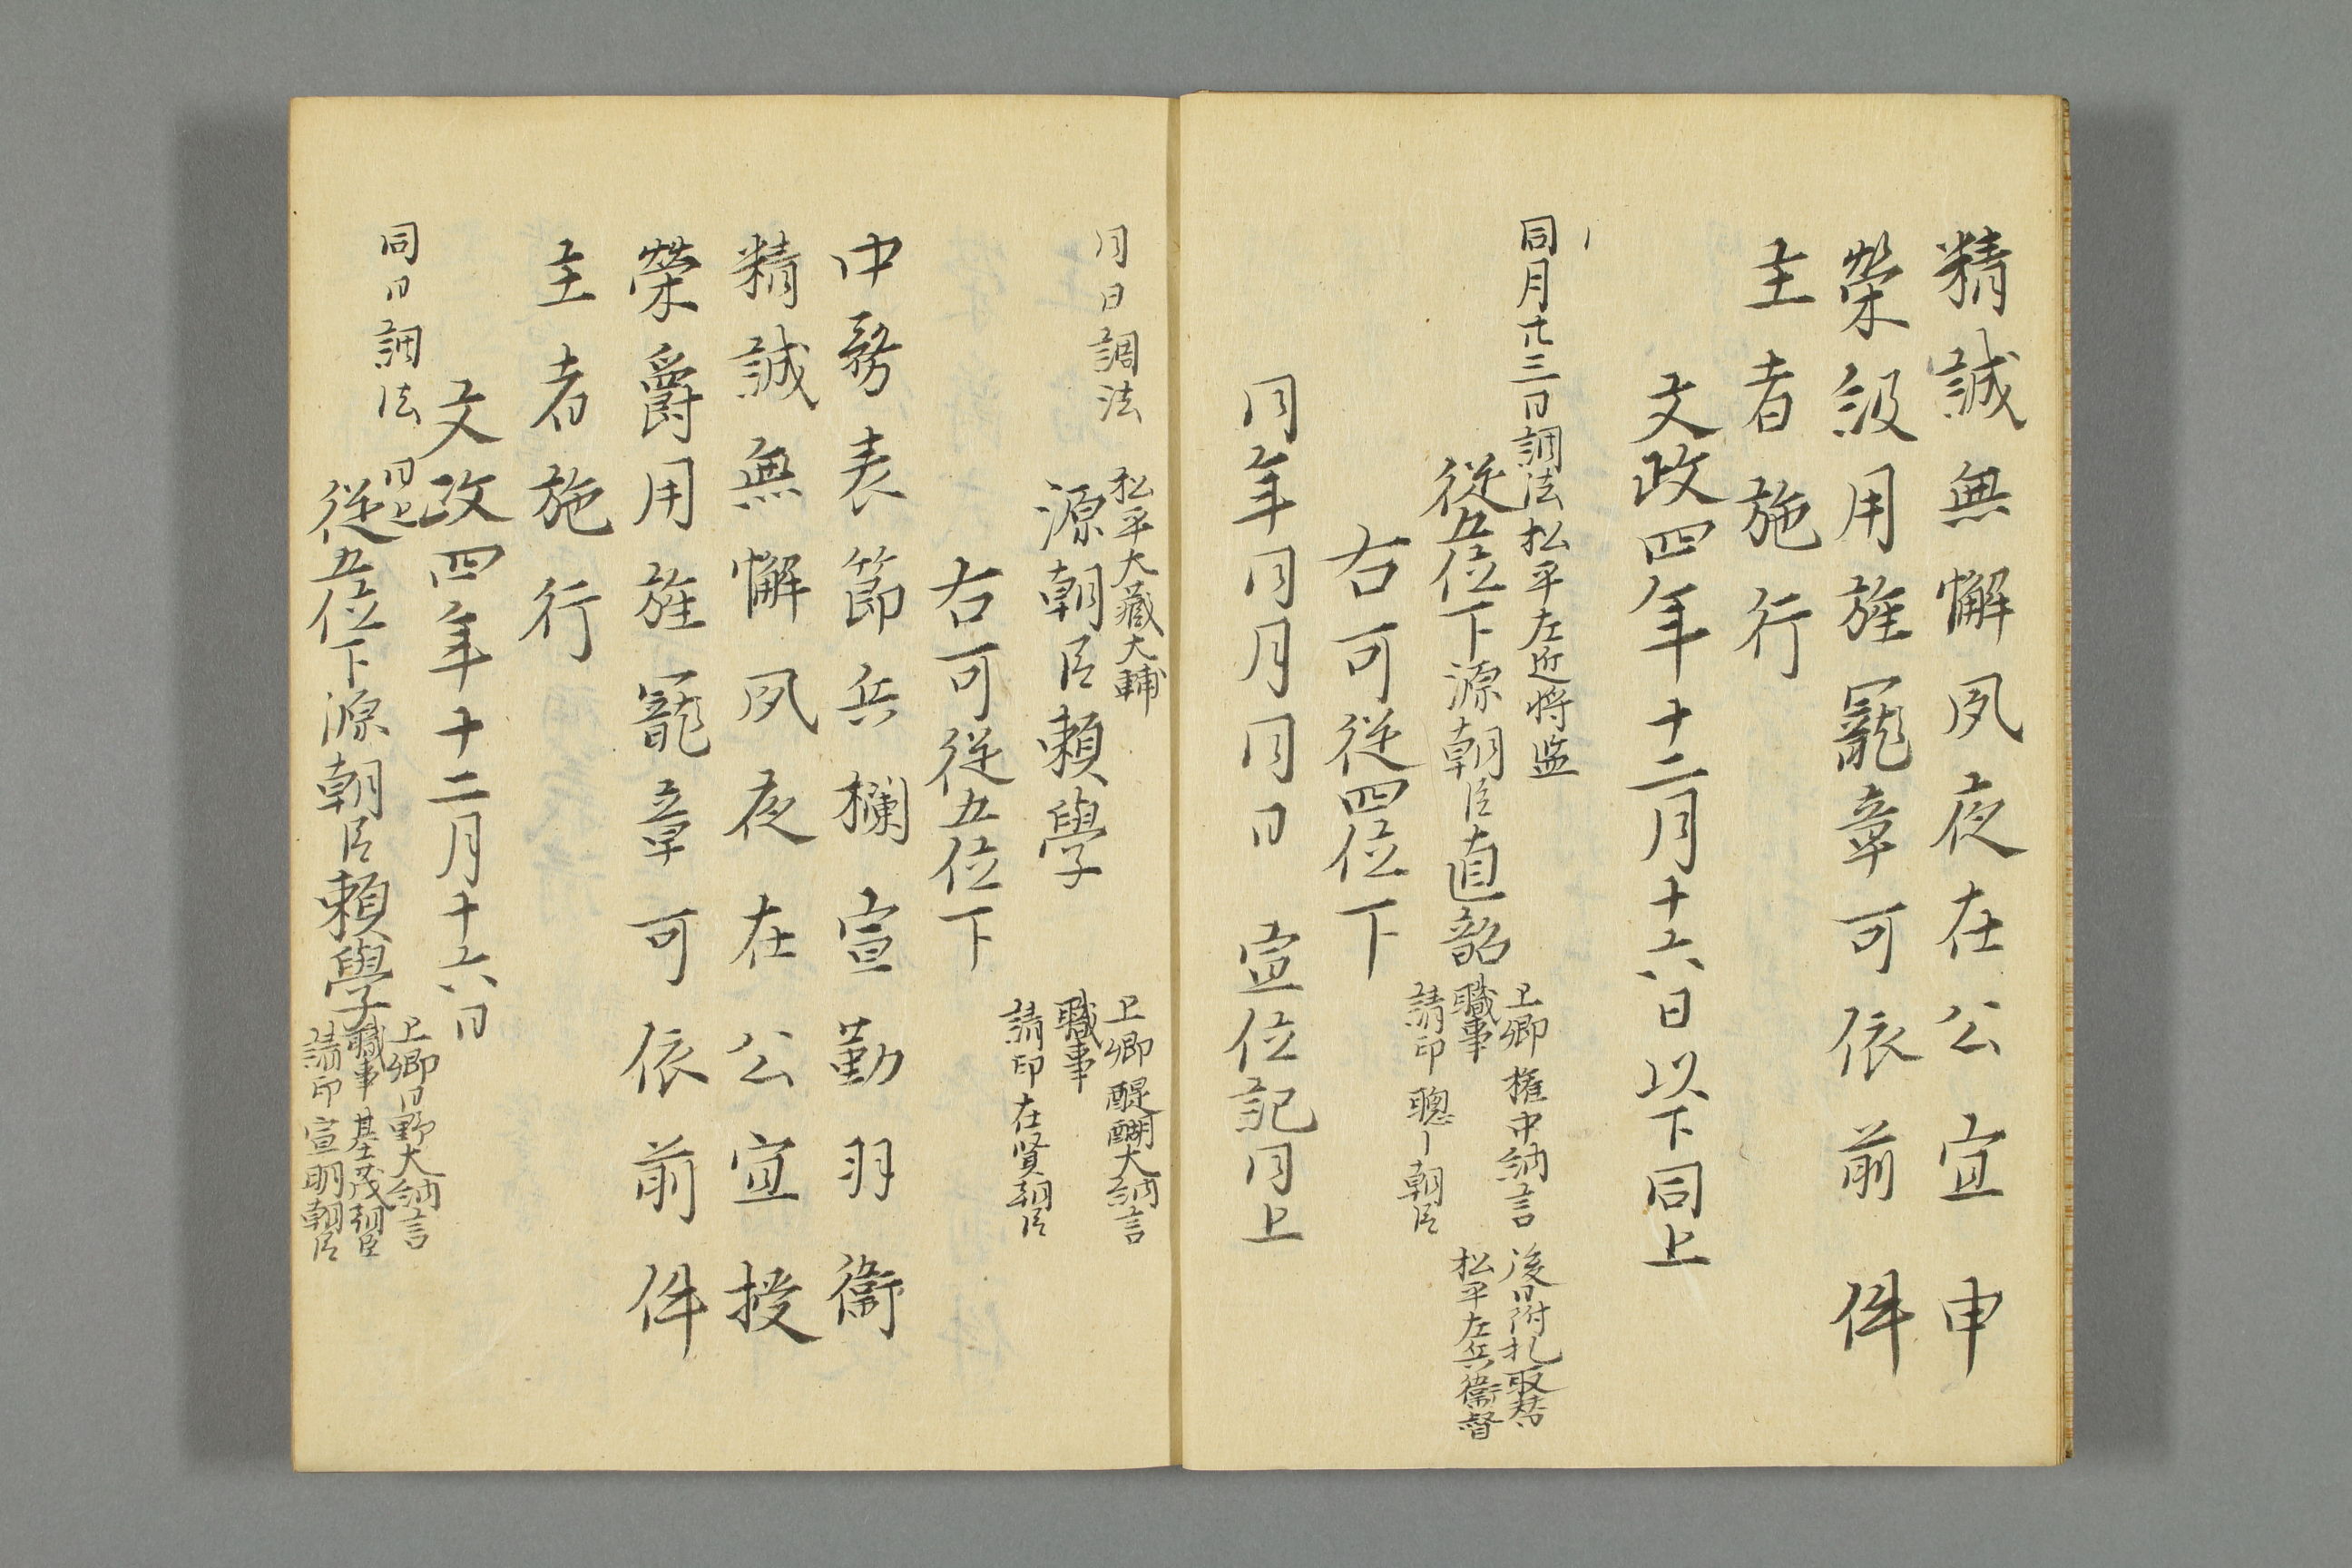 精誠無懈夙夜在公宜申
榮級用旌寵章可依前件
主者施行
文政四年十二月十六日以下同上
同月廿三日調法松平左近将監
従五位下源朝臣直韶
上卿 権中納言
職事
請印 聰〡朝臣
後日附札取替
松平左兵衛督
右可従四位下
同年同月同日 宣位記同上
同日調法
松平大蔵大輔
源朝臣頼學
上卿醍醐大納言
職事
請印在賢朝臣
右可従五位下
中務表節兵欄宣勤羽衛
精誠無懈夙夜在公宜授
榮爵用旌寵章可依前件
主者施行
文政四年十二月十六日
同日調法
同上
従五位下源朝臣頼學
上卿日野大納言
職事基茂朝臣
請印宣明朝臣